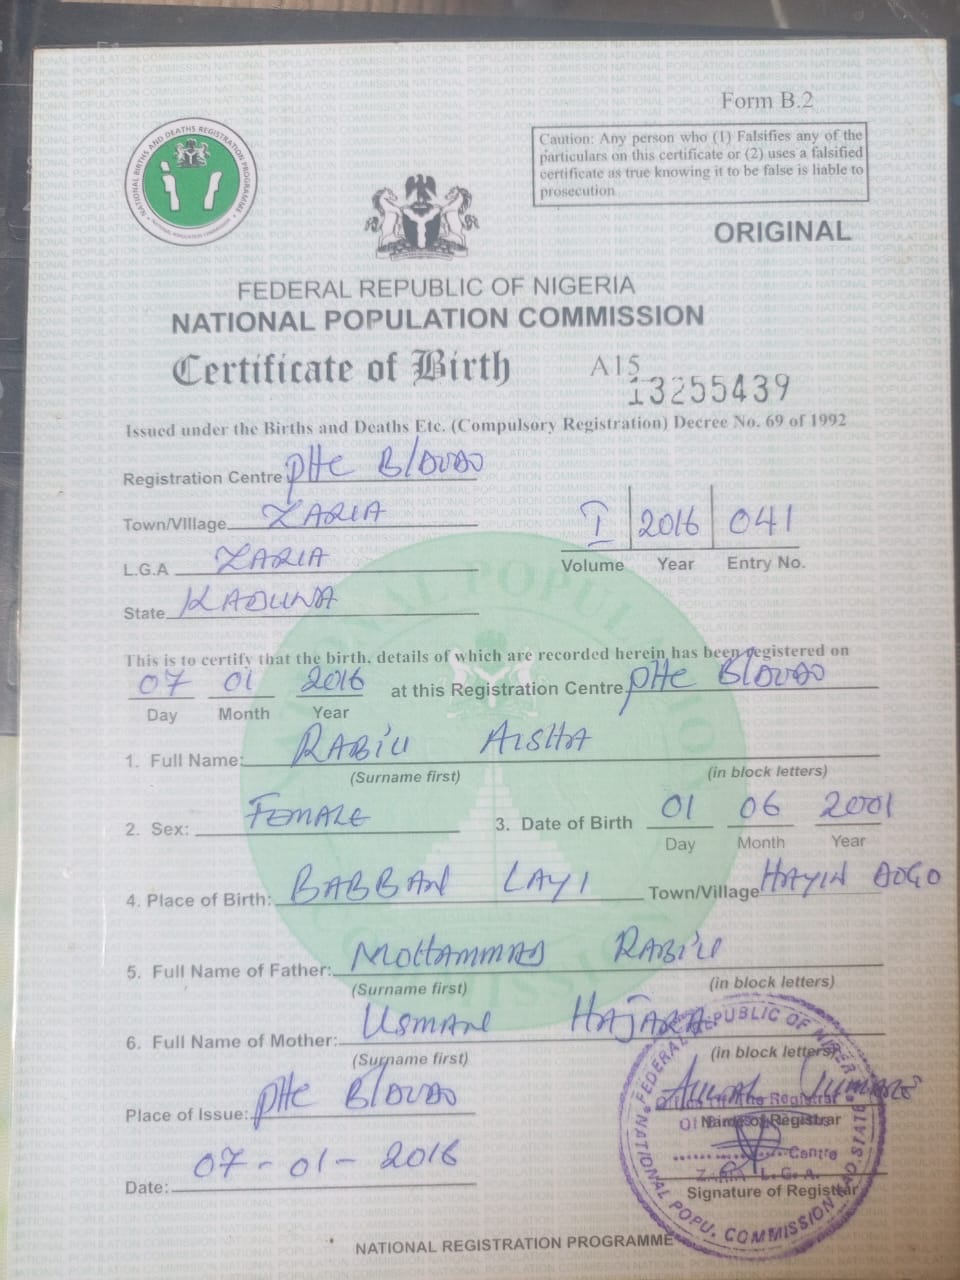 Form B.2
Caution: Any person who (1) Falsifies any of the
particulars on this certificate or (2) uses a falsified
certificate as true knowing it to be false is liable to
prosecution
NATIONAL BIRTHS AND DEATHS REGISTRATION PROGRAMME
NATIONAL POPULATION COMMISSION
ORIGINAL
FEDERAL REPUBLIC OF NIGERIA
NATIONAL POPULATION COMMISSION
Certificate of Birth A15 13255439
Issued under the Births and Deaths Etc. (Compulsory Registration) Decree No. 69 of 1992
Registration Centre PHC B/
Town/Village ZARIA
I 2016 041
L.G.A ZARIA
Volume Year Entry No.
State KADUNA
This is to certify that the birth, details of which are recorded herein has been registered on
07 01 2016 at this Registration Centre PHC B/
Day Month Year
1. Full Name: RABIU AISHA
(Surname first) (in block letters)
2. Sex: FEMALE 3. Date of Birth 01 06 2001
Day Month Year
4. Place of Birth: BABBAN LAYI Town/Village HAYIN
5. Full Name of Father: MOHAMMAD RABIU
(Surname first) (in block letters)
6. Full Name of Mother: USMAN HAJARA
(Surname first) (in block letters)
Place of Issue: PHC B/
Name of Registrar
Date: 07-01-2016
Signature of Registrar
FEDERAL REPUBLIC OF NIGERIA
NATIONAL POPU. COMMISSION KAD. STATE
Office of the Registrar
Centre
ZARIA L.G.A.
NATIONAL REGISTRATION PROGRAMME